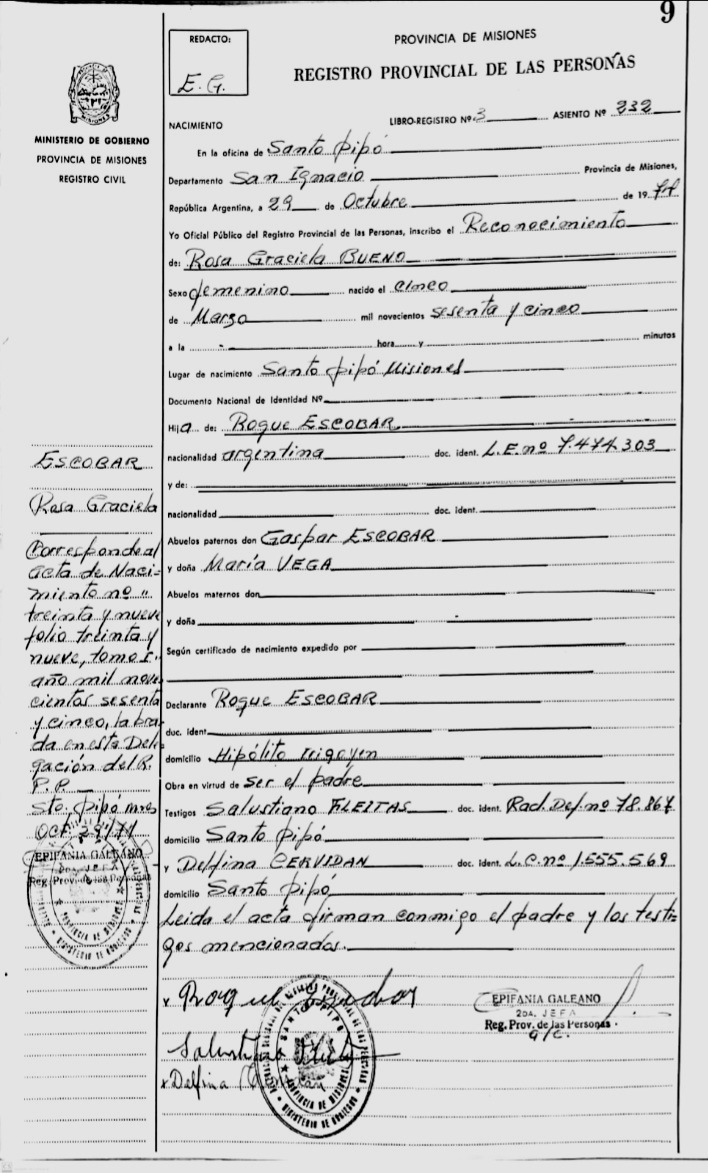 9
REDACTO:
E. G.
PROVINCIA DE MISIONES
REGISTRO PROVINCIAL DE LAS PERSONAS
MINISTERIO DE GOBIERNO
PROVINCIA DE MISIONES
REGISTRO CIVIL
NACIMIENTO
LIBRO-REGISTRO Nº 3 ASIENTO Nº 232
En la oficina de Santo Pipó
Departamento San Ignacio Provincia de Misiones,
República Argentina, a 29 de Octubre de 1971
Yo Oficial Público del Registro Provincial de las Personas, inscribo el Reconocimiento
de: Rosa Graciela BUENO
Sexo femenino nacido el cinco
de Marzo mil novecientos sesenta y cinco
a la hora y minutos
Lugar de nacimiento Santo Pipó Misiones
Documento Nacional de Identidad Nº
Hija de: Roque ESCOBAR
nacionalidad argentina doc. ident. L.E. nº 7.474.303
y de:
nacionalidad doc. ident.
Abuelos paternos don Gaspar ESCOBAR
y doña María VEGA
Abuelos maternos don
y doña
Según certificado de nacimiento expedido por
Declarante Roque ESCOBAR
duc. ident.
domicilio Hipólito Irigoyen
Obra en virtud de ser el padre
Testigos Salustiano FLEITAS doc. ident. Rad. Def. nº 78.867
domicilio Santo Pipó
y Delfina CERVIDAN doc. ident. L.C. nº 1.555.569
domicilio Santo Pipó
Leida el acta firman conmigo el padre y los testi-
gos mencionados.
ESCOBAR
Rosa Graciela
Corresponde al
acta de Naci-
miento nº
treinta y nueve
folio treinta y
nueve, tomo I.
año mil nove
cientos sesenta
y cinco, labra
da en esta Dele
gación del R.
P.P.
Sto. Pipó Mnes
OCT. 29/71
EPIFANIA GALEANO
2da. JEFA
Reg. Prov. de las Personas
PROVINCIA DE MISIONES
MINISTERIO DE GOBIERNO
x Roque Escobar
Salustiano
x Delfina
SANTO PIPO
PROVINCIA DE MISIONES
MINISTERIO DE GOBIERNO
EPIFANIA GALEANO
2da. JEFA
Reg. Prov. de las Personas
a/c.